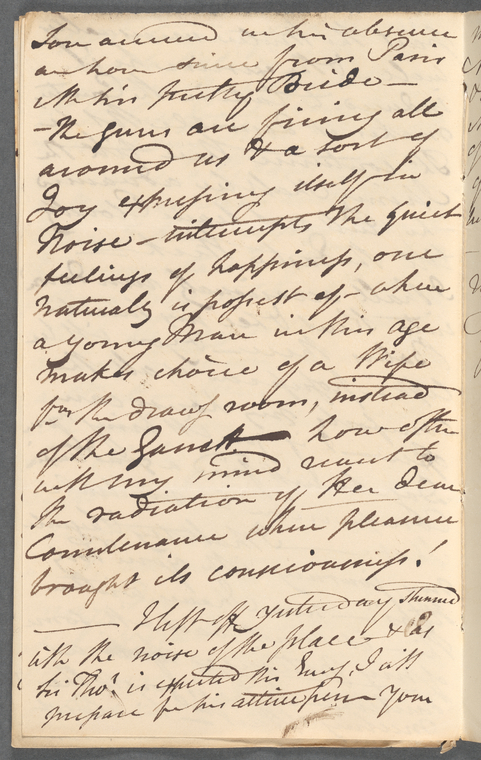 Son arrived in his absence
an hour since from Paris
with his pretty Bride —
— The Guns are firing all
around us & a sort of
Joy expressing itself in
Noise — interrupts the quiet
feelings of happiness, one
naturally is possest of — when
a young Man in this age
makes choice of a Wife
from the draw<sup>g</sup> room, instead
of the Garrett how often
will my mind revert to
the radiation of Her dear
Countenance when pleasure
brought its consciousness!
— I left off yesterday Stunned
with the noise of the place & as
Sir Tho<sup>s</sup> is expected this Eve<sup>g</sup>, I will
prepare for his attice your